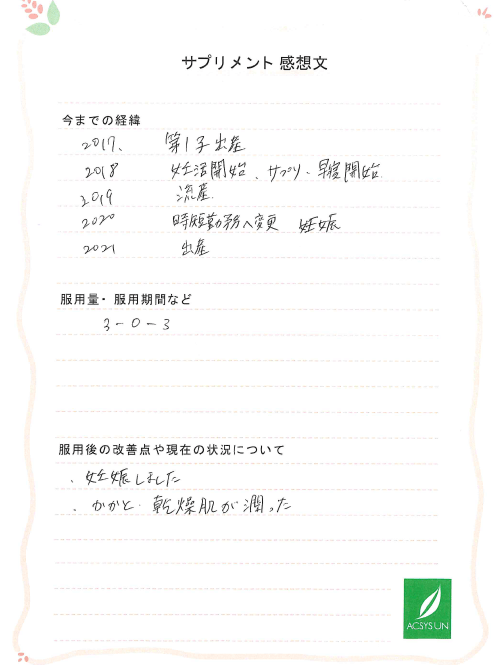 サプリメント 感想文
今までの経緯
2017、 第1子出産
2018 妊活開始、サプリ・早寝開始
2019 流産
2020 時短勤務へ変更 妊娠
2021 出産
服用量・服用期間など
3-0-3
服用後の改善点や現在の状況について
、妊娠しました
、かかと・乾燥肌が潤った
ACSYSUN